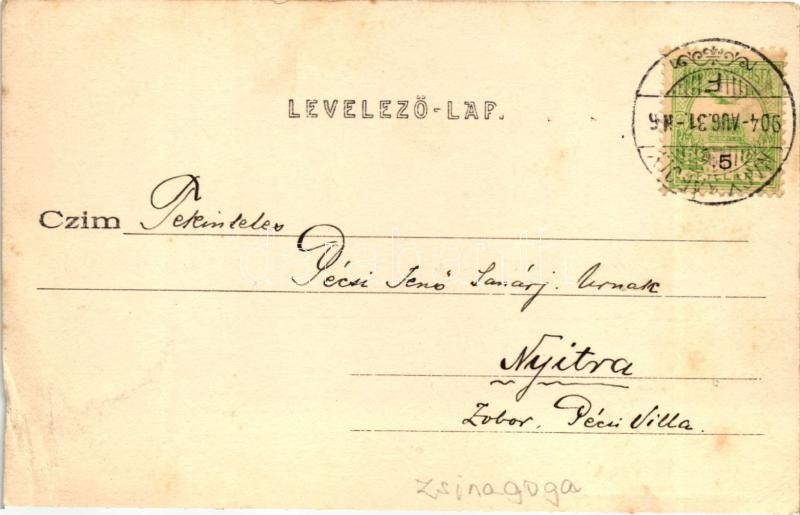 LEVELEZŐ-LAP.
904 AUG. 31
5
Czim Tekintetes
Pécsi Jenő tanárj. Urnak
Nyitra
Zobor, Pécsi Villa.
zsinagoga